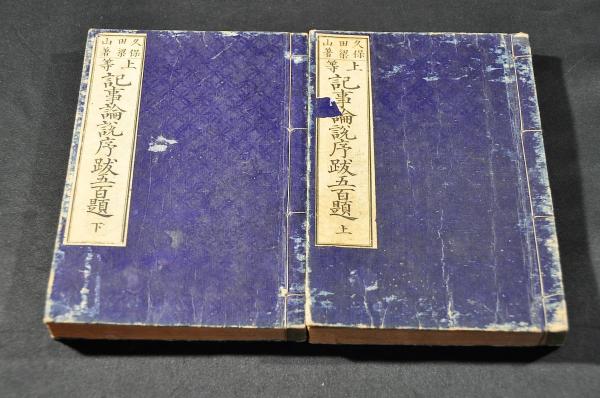 久保
田梁
山著
上等記事論説序跋五百題 上
久保
田梁
山著
上等記事論説序跋五百題 下